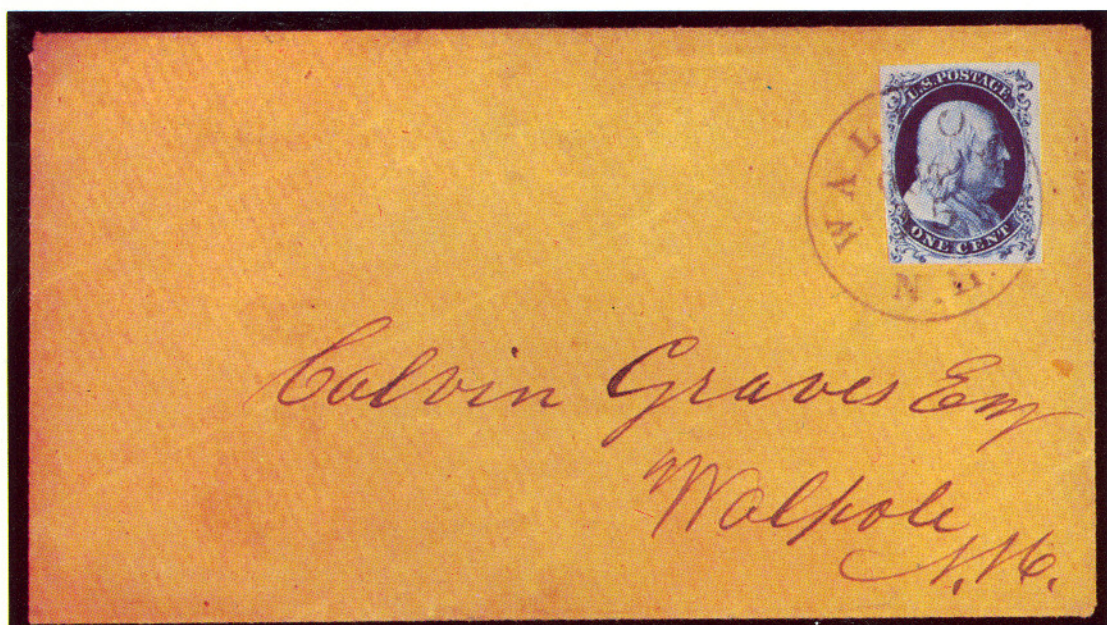 U.S. POSTAGE
ONE CENT
WAL O
N.H.
Calvin Graves Esq
Walpole
N.H.